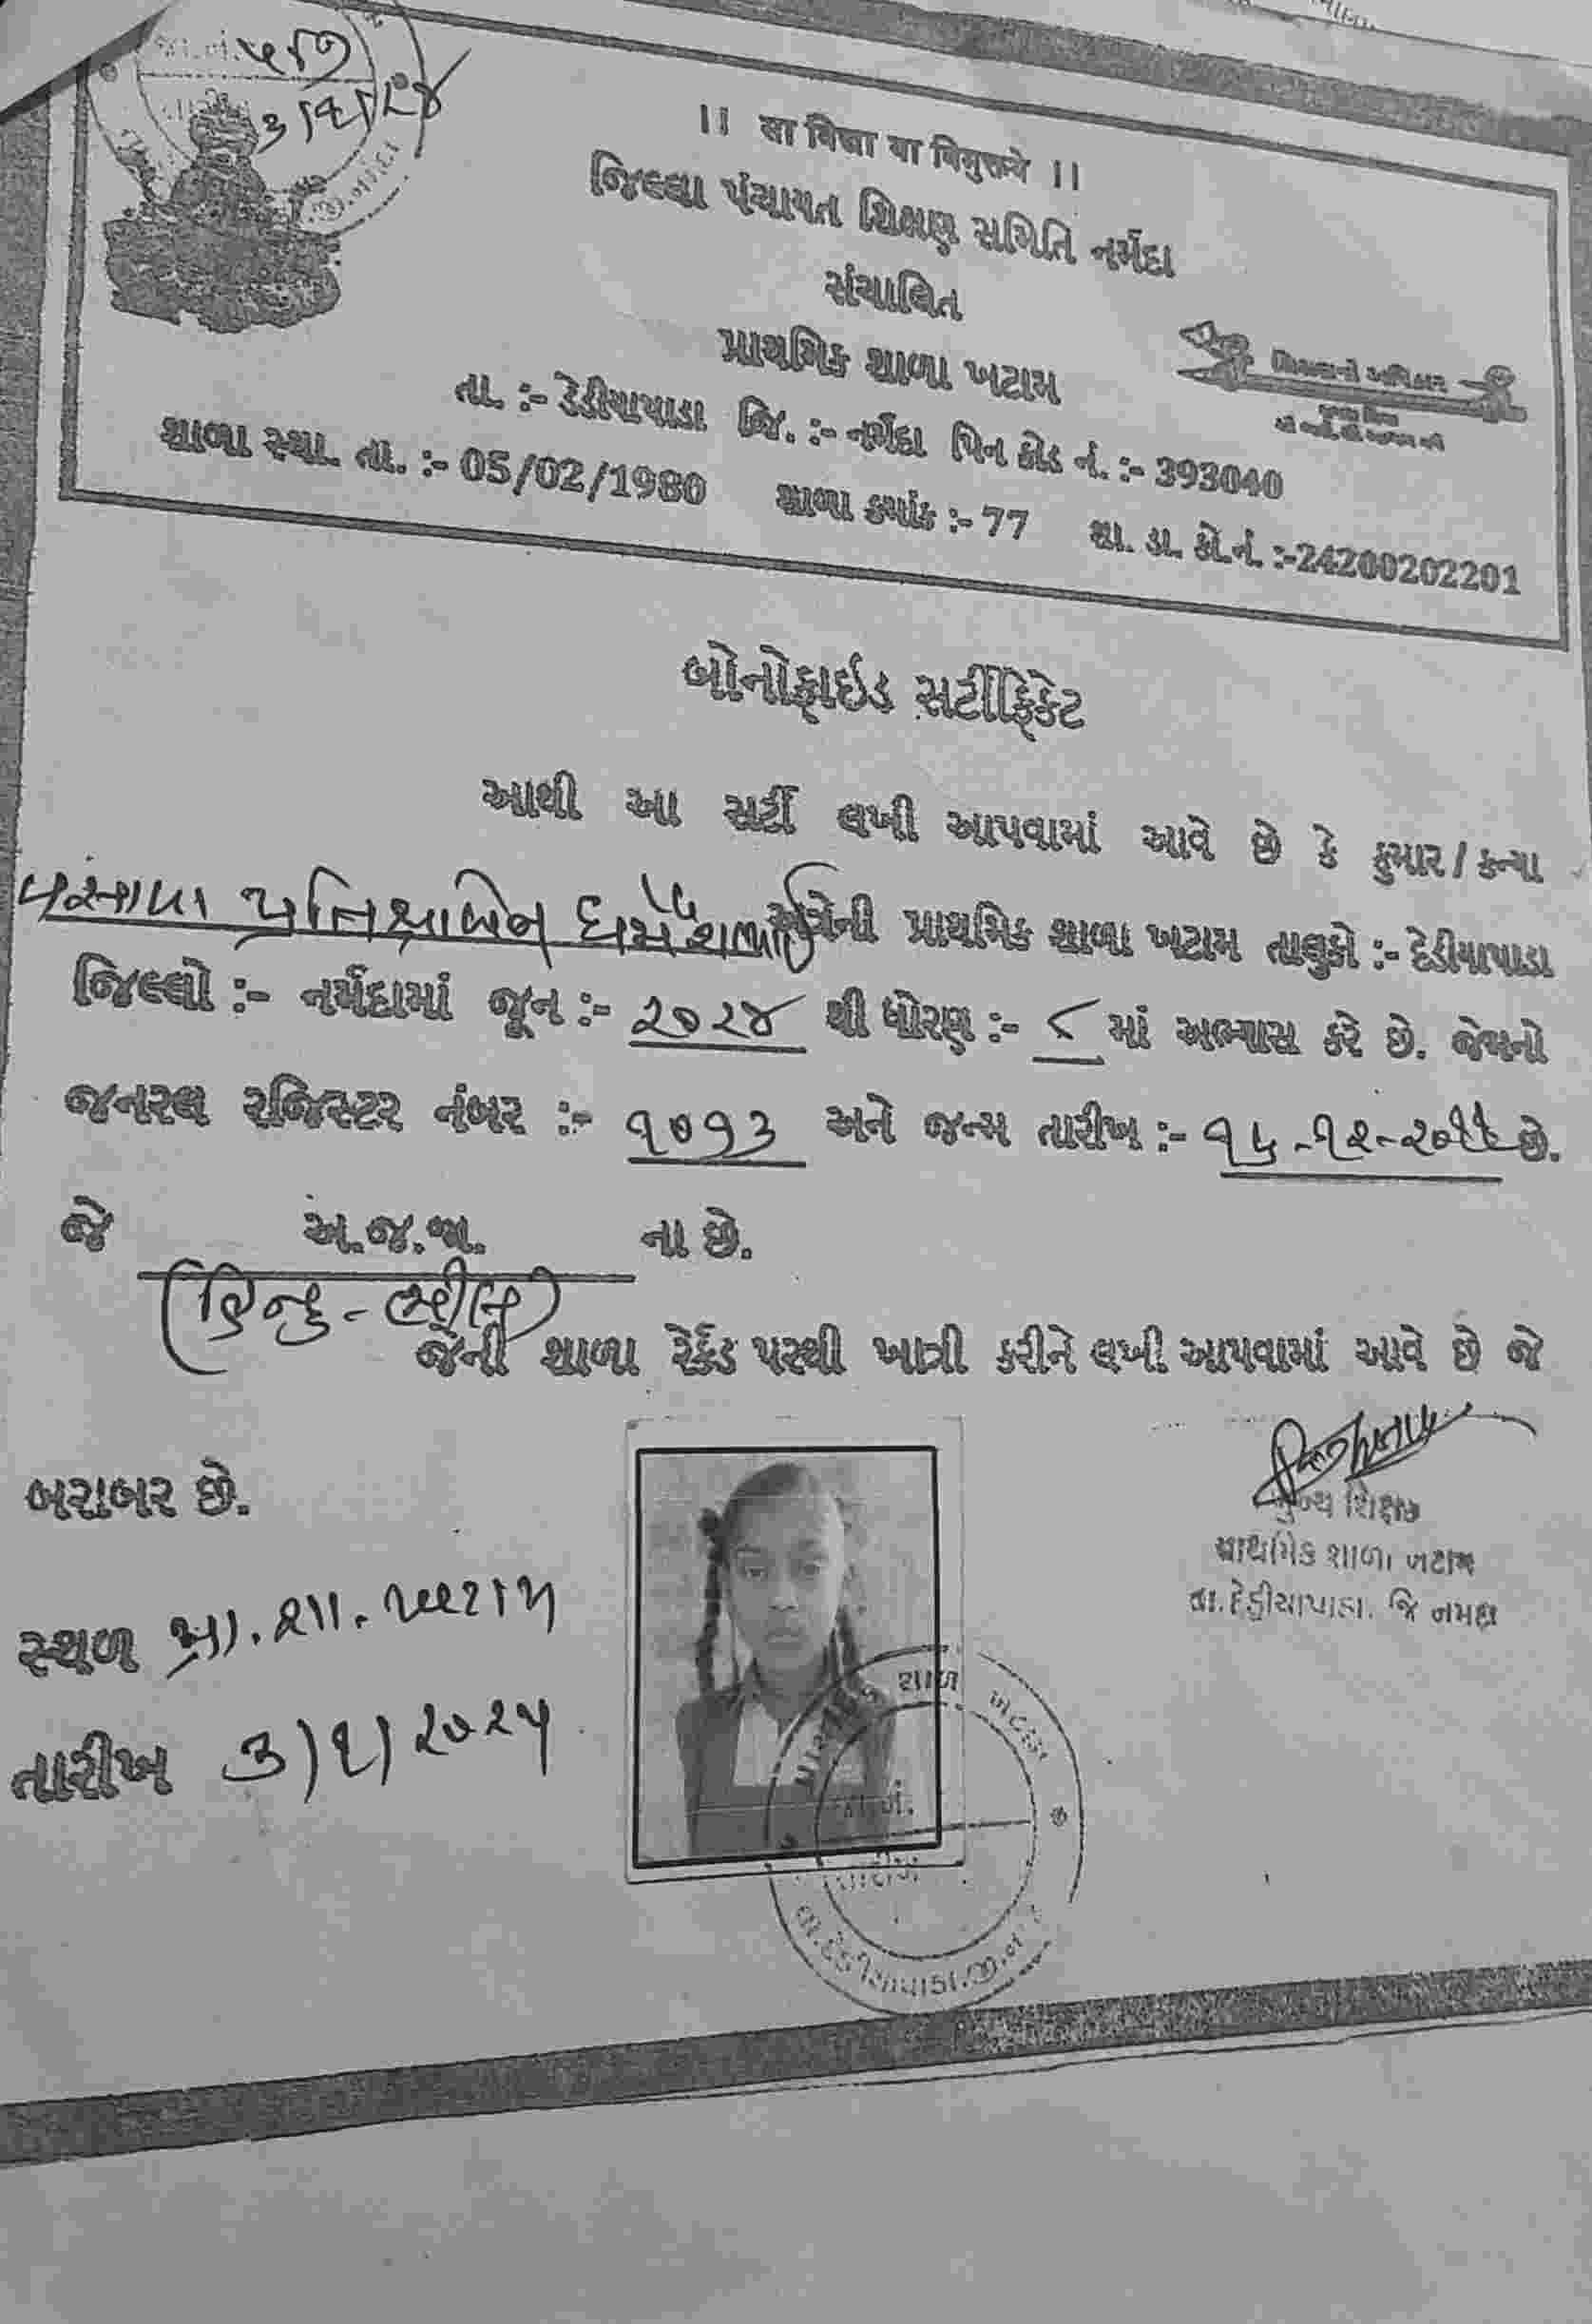 ૩/૧/૨૪
।। सा विद्या या विमुक्तये ।।
જિલ્લા પંચાયત શિક્ષણ સમિતિ નર્મદા
સંચાલિત
પ્રાથમિક શાળા ખટામ
તા. :- દેડીયાપાડા જિ. :- નર્મદા પિન કોડ નં. :- 393040
શાળા સ્થા. તા. :- 05/02/1980 શાળા ક્રમાંક :- 77 શા. ડા. કો.નં. :-24200202201
બોનોફાઇડ સર્ટીફિકેટ
આથી આ સર્ટી લખી આપવામાં આવે છે કે કુમાર / કન્યા
વસાવા પ્રતિક્ષાબેન ધર્મેશભાઈ અત્રેની પ્રાથમિક શાળા ખટામ તાલુકો :- દેડીયાપાડા
જિલ્લો :- નર્મદામાં જૂન :- ૨૦૨૪ થી ધોરણ :- ૮ માં અભ્યાસ કરે છે. જેમનો
જનરલ રજિસ્ટર નંબર :- ૧૦૧૩ અને જન્મ તારીખ :- ૧૫-૧૨-૨૦૧૧ છે.
જે અ.જ.જા. ના છે.
(હિન્દુ - ભીલ)
જેની શાળા રેર્કડ પરથી ખાત્રી કરીને લખી આપવામાં આવે છે જે
બરાબર છે.
મુખ્ય શિક્ષક
પ્રાથમિક શાળા ખટામ
તા.દેડીયાપાડા. જિ નર્મદા
સ્થળ પ્રા. શા. ખટામ
તારીખ ૩/૧/૨૦૨૫
પ્રાથમિક શાળા ખટામ
જા.નં.
તારીખ
તા.દેડીયાપાડા.જી.નર્મદા